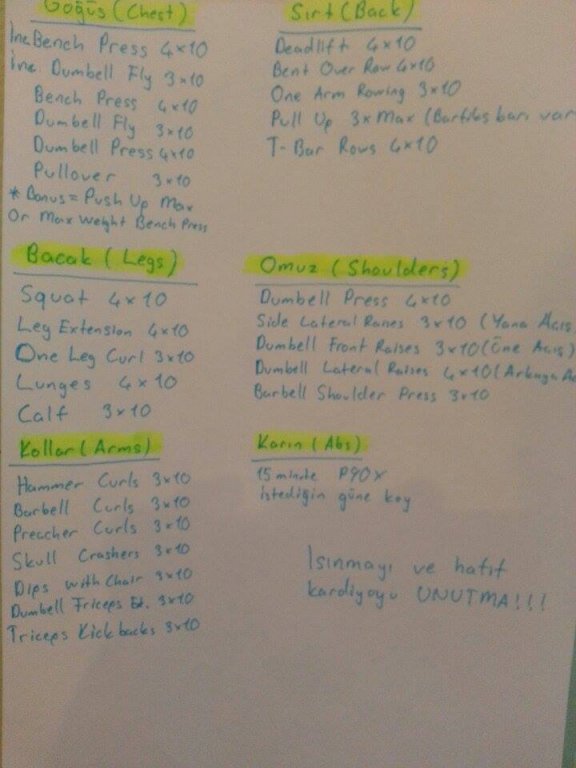 Göğüs (Chest)
Inc Bench Press 4x10
inc Dumbell Fly 3x10
Bench Press 4x10
Dumbell Fly 3x10
Dumbell Press 4x10
Pullover 3x10
* Bonus = Push Up Max
Or Max Weight Bench Press
Sırt (Back)
Deadlift 4x10
Bent Over Row 4x10
One Arm Rowing 3x10
Pull Up 3xMax (Barfiks barı var
T-Bar Rows 4x10
Bacak (Legs)
Squat 4x10
Leg Extension 4x10
One Leg Curl 3x10
Lunges 4x10
Calf 3x10
Omuz (Shoulders)
Dumbell Press 4x10
Side Lateral Raises 3x10 (Yana Açış
Dumbell Front Raises 3x10 (Öne Açış)
Dumbell Lateral Raises 4x10 (Arkaya
Barbell Shoulder Press 3x10
Kollar (Arms)
Hammer Curls 3x10
Barbell Curls 3x10
Preacher Curls 3x10
Skull Crashers 3x10
Dips with Chair 3x10
Dumbell Triceps Ex. 3x10
Triceps Kickbacks 3x10
Karın (Abs)
15 minute P90X
istediğin güne koy
Isınmayı ve hafif
kardiyoyu UNUTMA!!!